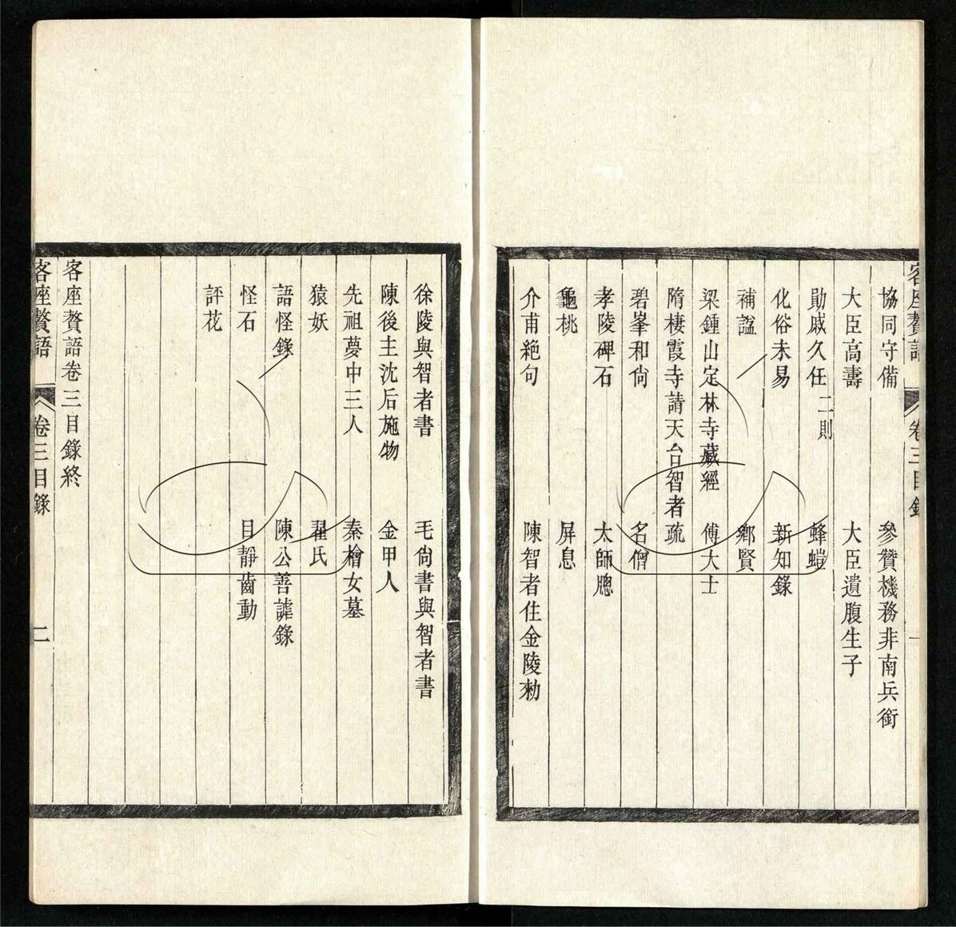 客座贅語　卷三目錄　一
協同守備　參贊機務非南兵銜
大臣高壽　大臣遺腹生子
勛戚久任二則　蜂螘
化俗未易　新知錄
補諡　鄉賢
梁鍾山定林寺藏經　傅大士
隋棲霞寺請天台智者疏
碧峯和尙　名僧
孝陵碑石　太師牕
龜桃　屏息
介甫絶句　陳智者住金陵勑
徐陵與智者書　毛尙書與智者書
陳後主沈后施物　金甲人
先祖夢中三人　秦檜女墓
猿妖　翟氏
語怪錄　陳公善謔錄
怪石　目靜齒動
評花
客座贅語卷三目錄終
客座贅語　卷三目錄　二